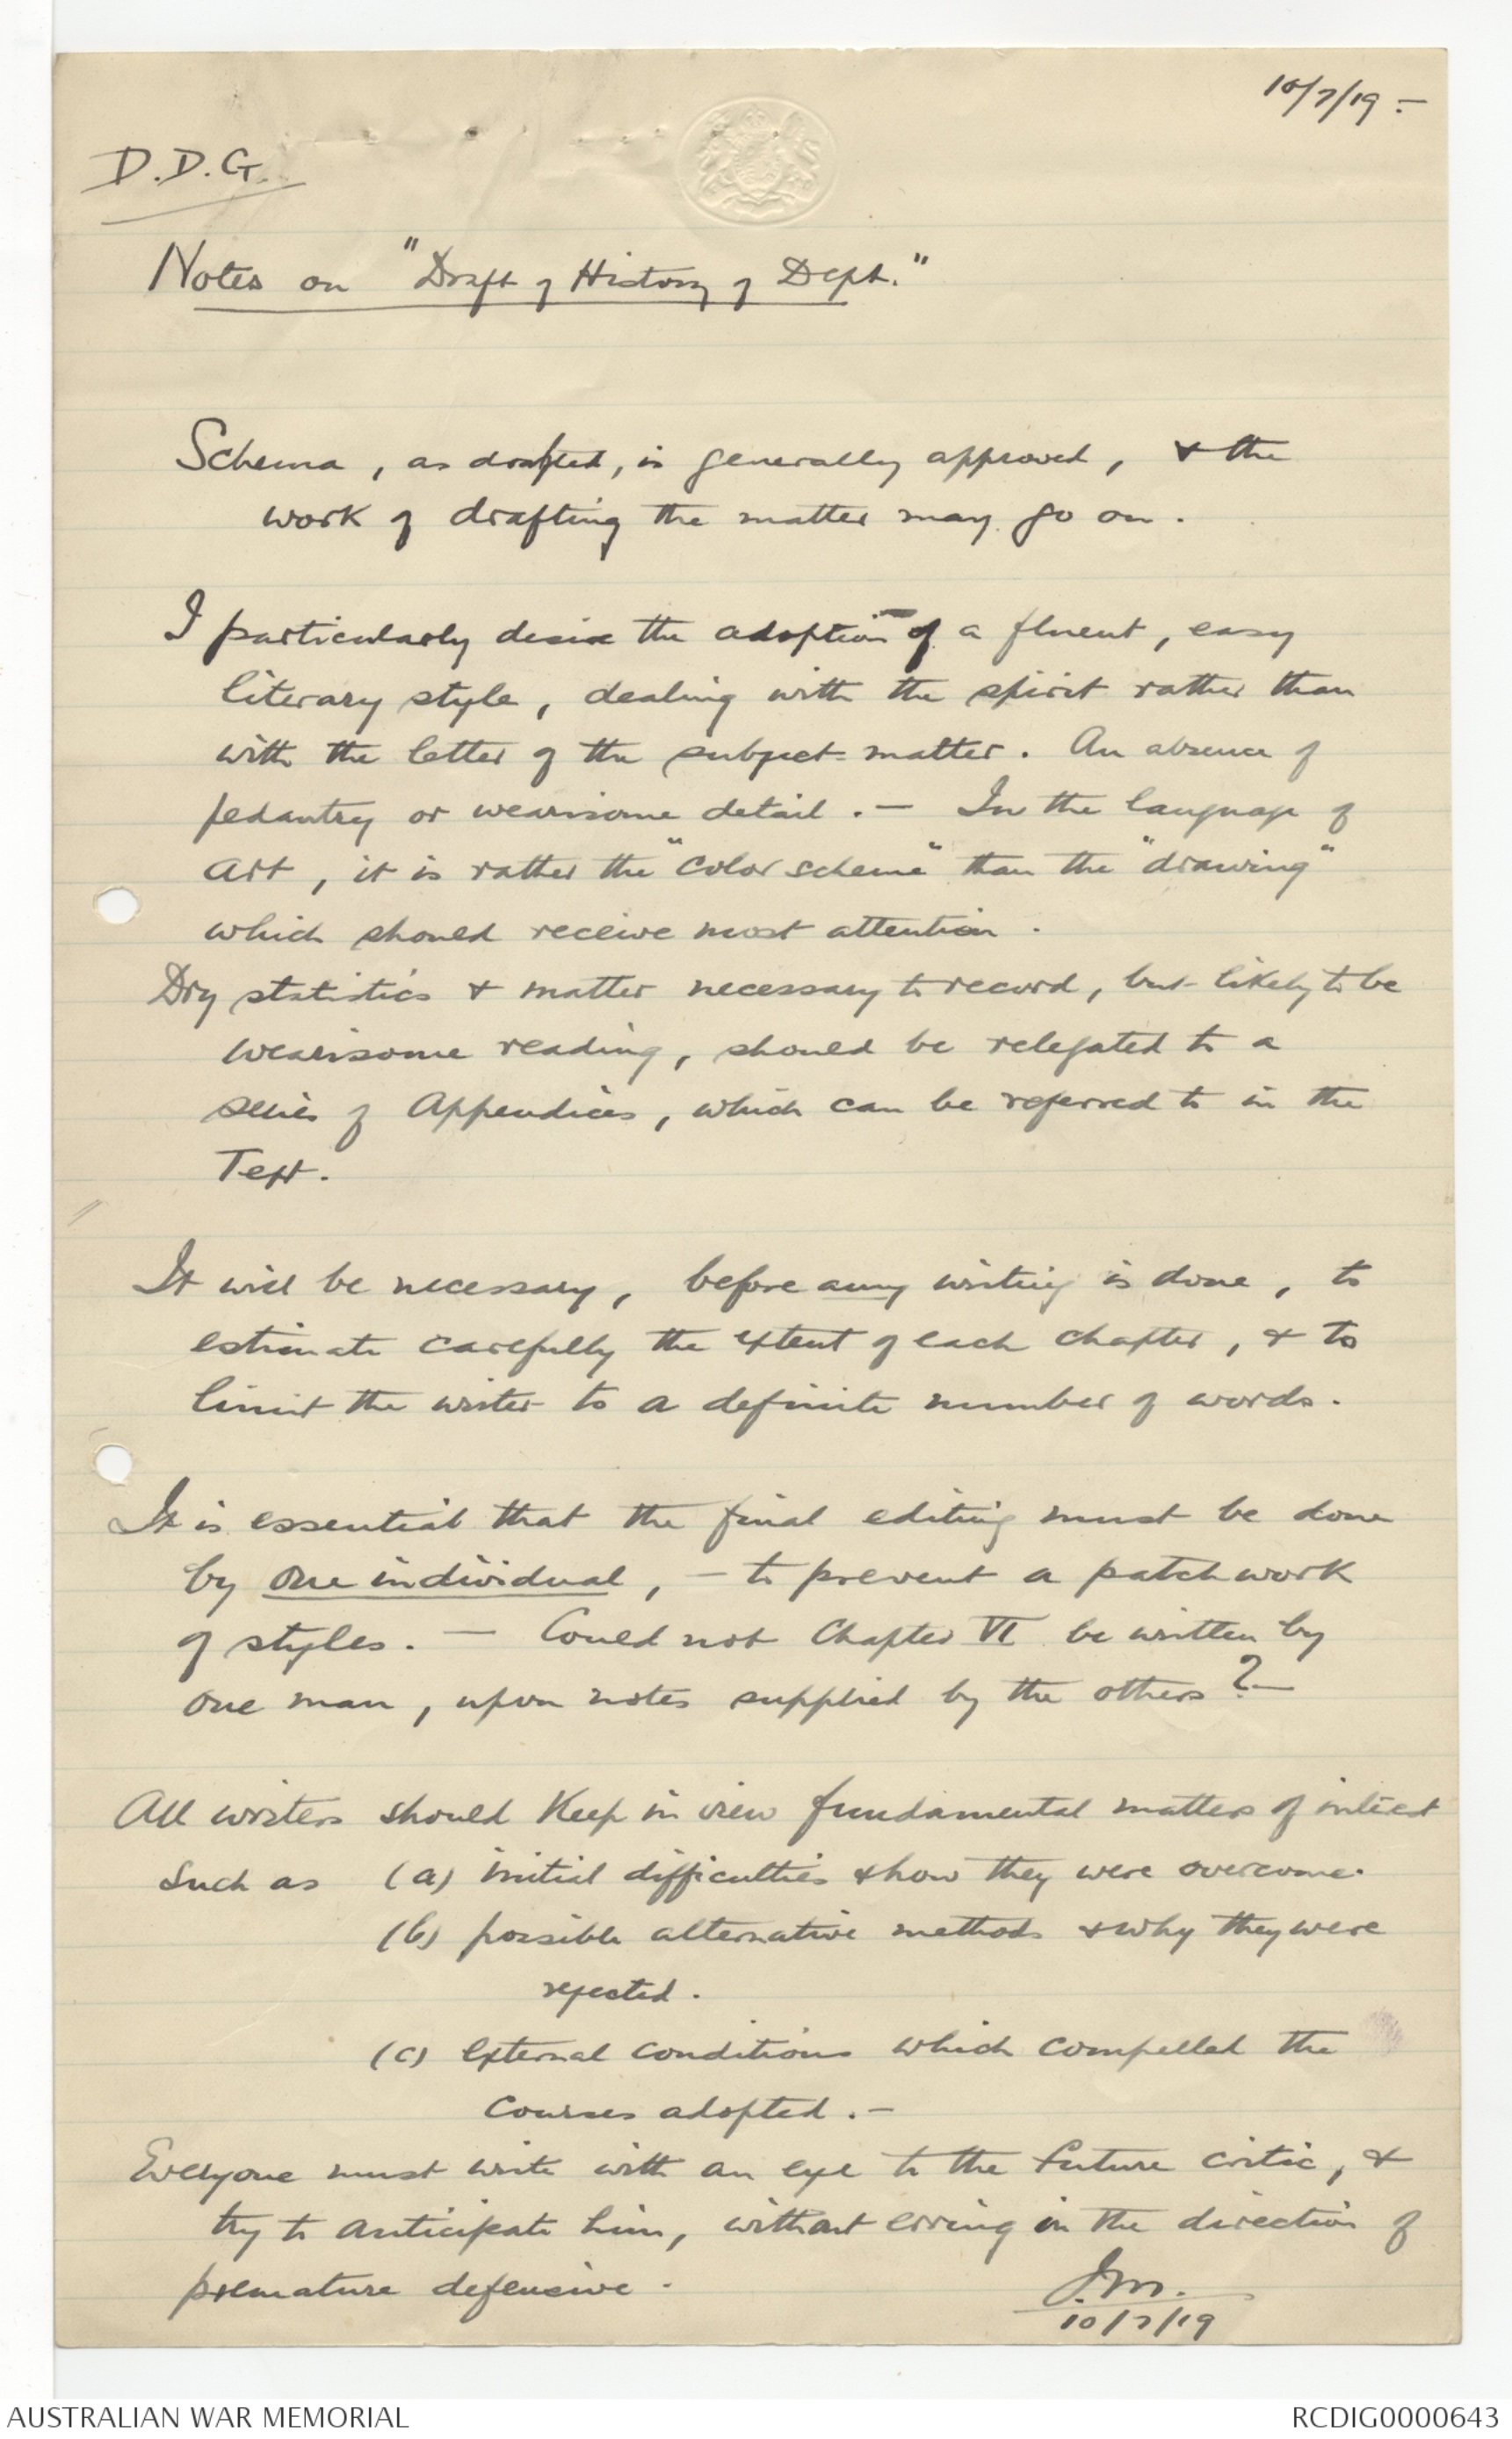 10/7/19 -
D.D.G.
Notes on "Draft of History of Dept."
Schema, as drafted, is generally approved, & the
work of drafting the matter may go on.
I particularly desire the adoption of a fluent, easy
literary style, dealing with the spirit rather than
with the letter of the subject-matter. An absence of
pedantry or wearisome detail. - In the language of
Art, it is rather the "color scheme" than the "drawing"
which should receive most attention.
Dry statistics & matter necessary to record, but likely to be
wearisome reading, should be relegated to a
series of Appendices, which can be referred to in the
Text.
It will be necessary, before any writing is done, to
estimate carefully the extent of each chapter, & to
limit the writer to a definite number of words.
It is essential that the final editing must be done
by one individual, - to prevent a patchwork
of styles. - Could not Chapter VI be written by
one man, upon notes supplied by the others? -
All writers should keep in view fundamental matters of interest
such as (a) initial difficulties & how they were overcome.
(b) possible alternative methods & why they were
rejected.
(c) external conditions which compelled the
courses adopted. -
Everyone must write with an eye to the future critic, &
try to anticipate him, without erring in the direction of
premature defensive.
J.M.
10/7/19
AUSTRALIAN WAR MEMORIAL
RCDIG0000643